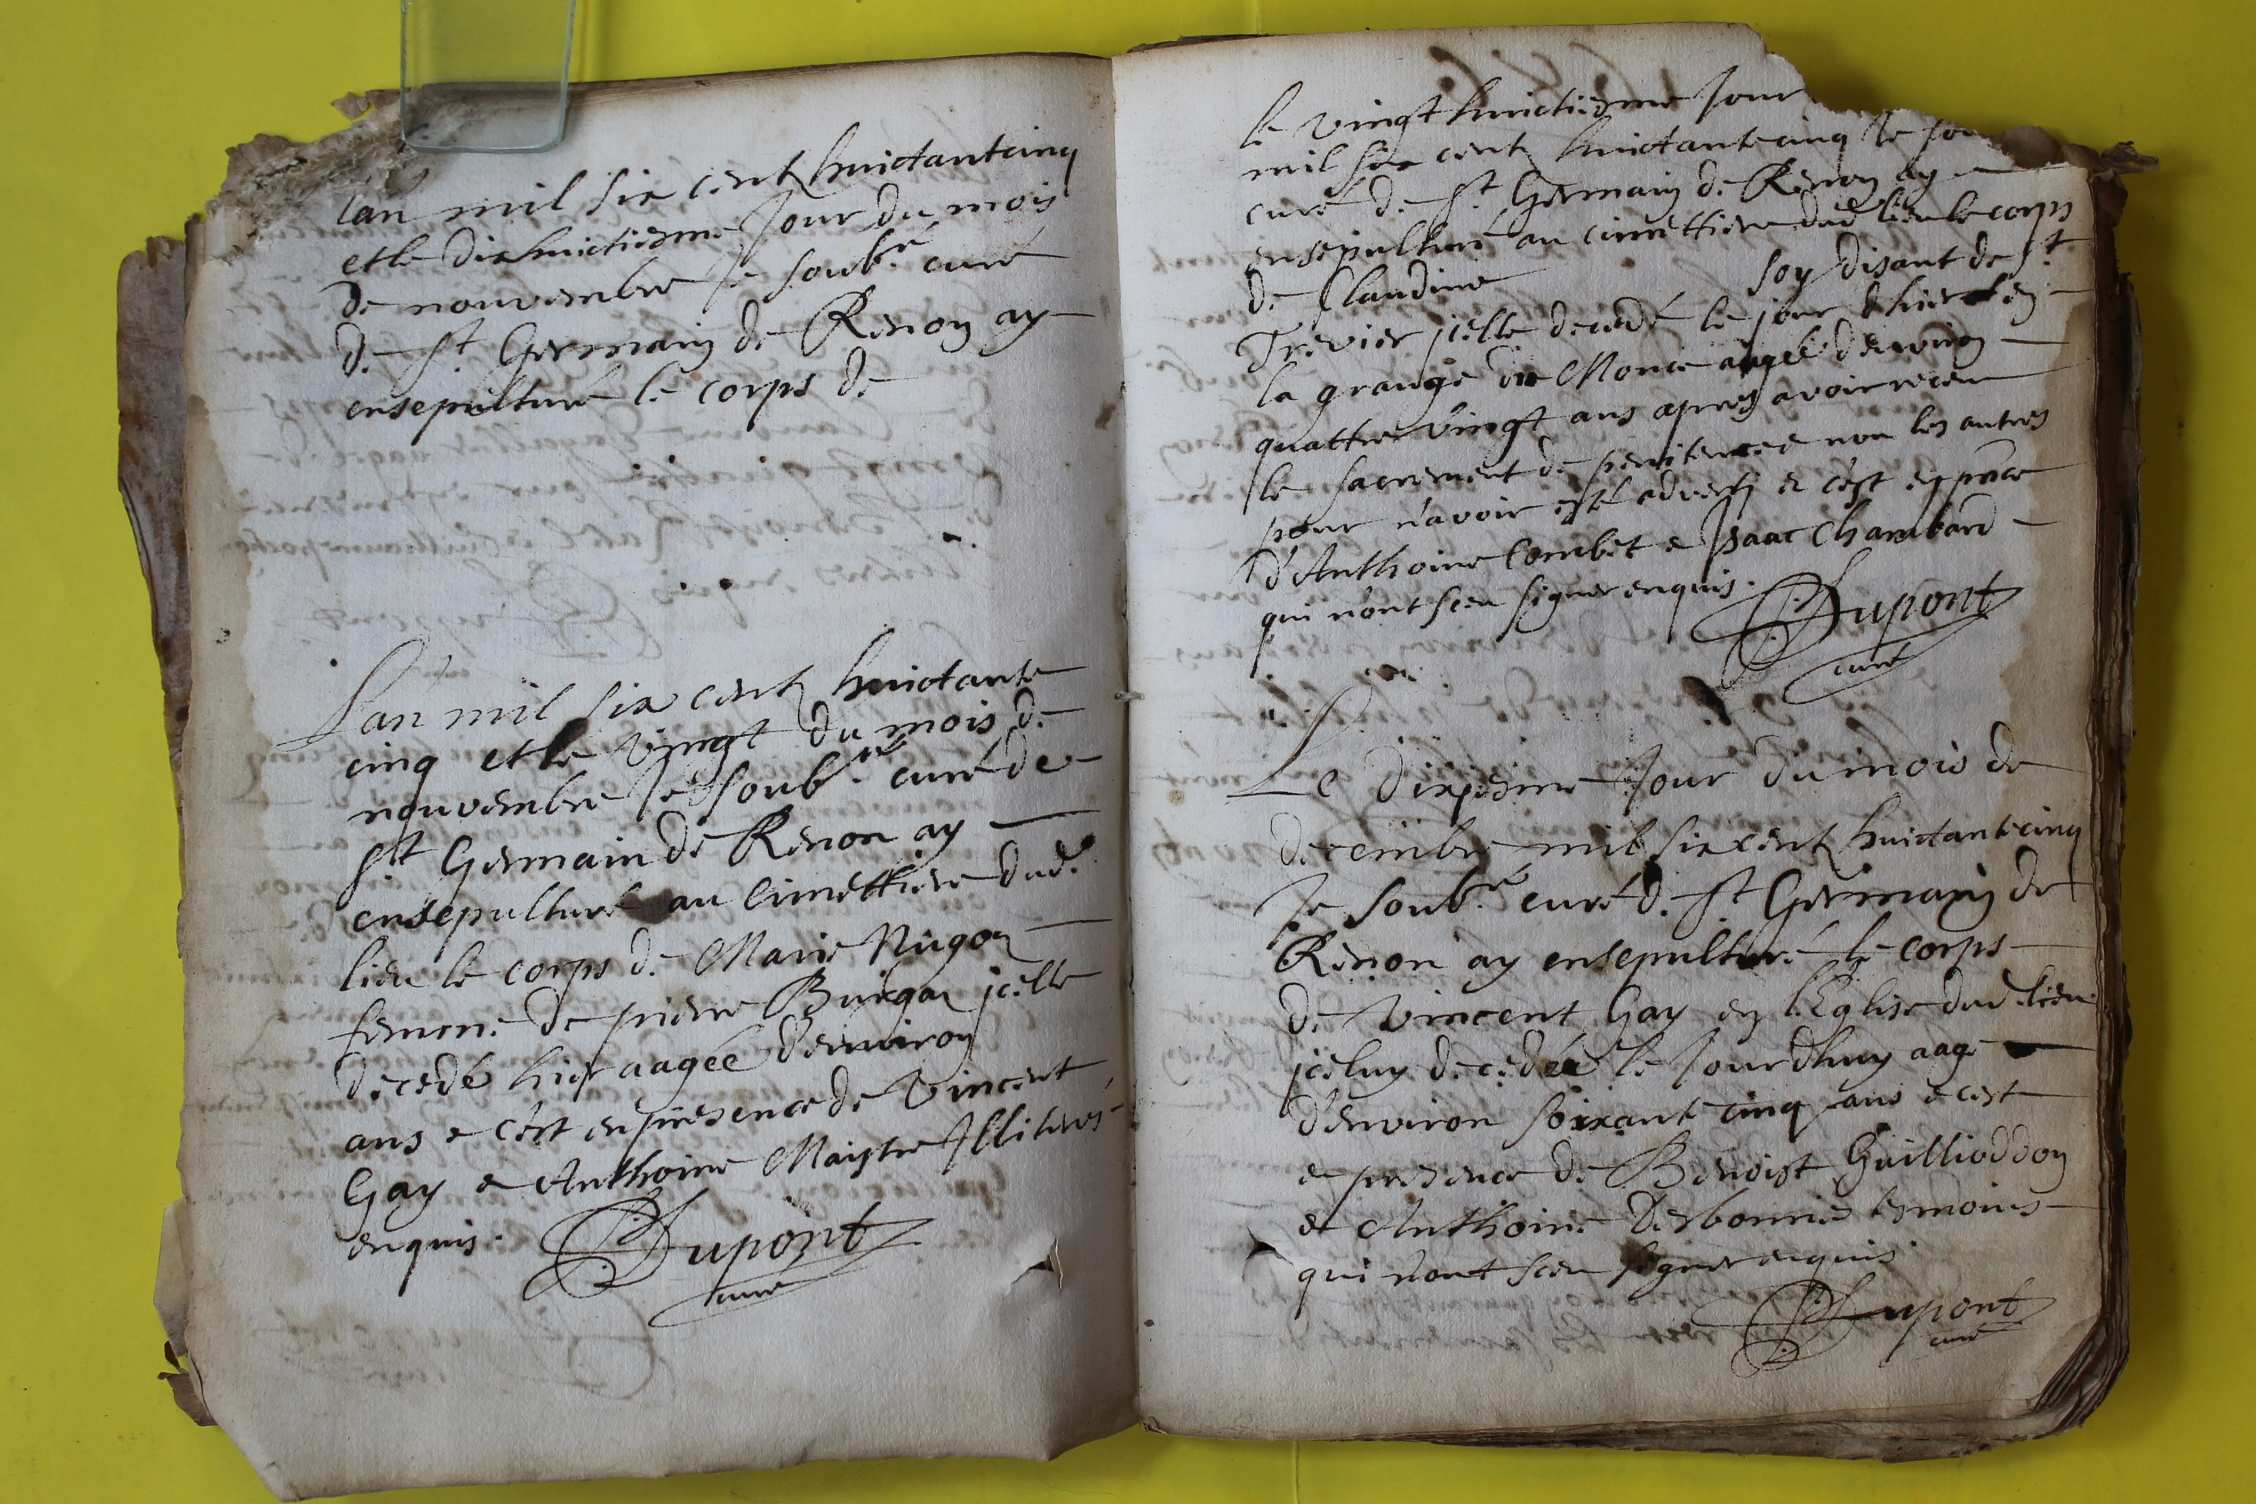 Lan mil six cent huictantecinq
et le dixhuictiesme Jour du mois
de nouvembre Je soub.né curé
de St Germain de Renon ay
ensepulturé le corps de
Lan mil six cent huictante
cinq et le vingt du mois de
nouvembre Je soub.né curé de
St Germain de Renon ay
ensepulturé au Cimettiere dud.
lieu le corps de Marie Nugon
femme de pierre icelle
decedé hier aagéé d'environ
ans e c'est en presence de Vincent
Gay e Anthoine Maistre Illiteres
enquis. Dupont
curé
le vingt huictiesme Jour
mil six cent huictantecinq Je
curé de St Germain de Renon ay
ensepulturé au cimettiere dud lieu le corps
de Claudine soy disant de St
Trevier icelle decedé le jour d'hier en
la grange du Monce aagéé d'environ
quattre vingt ans apres avoir receu
le sacrement de penitence e non les autres
pour n'avoir esté adverti e c'est en pnce
d'Anthoine Combet e Isaac Chambard
qui n'ont sceu signer enquis.
Dupont
curé
Le dixiesme Jour du mois de
decembre mil six cent huictantecinq
Je soub.né curé de St Germain de
Renon ay ensepulturé le corps
de Vincent Gay en l'Eglise dud. lieu
iceluy decedéé le Jourdhuy aagé
d'environ soixante cinq ans e c'est
e presence de Benoist Guillioddon
e Anthoine Desbonnes tesmoins
qui n'ont sceu signer enquis
Dupont
curé